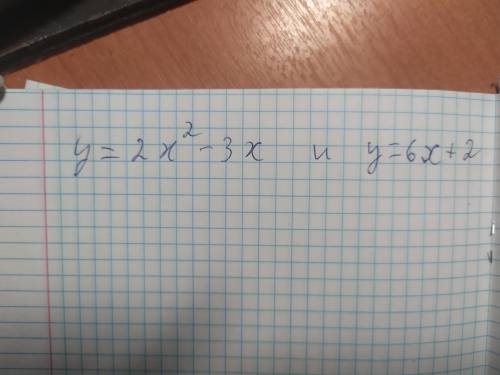 y = 2x² - 3x и y = 6x + 2